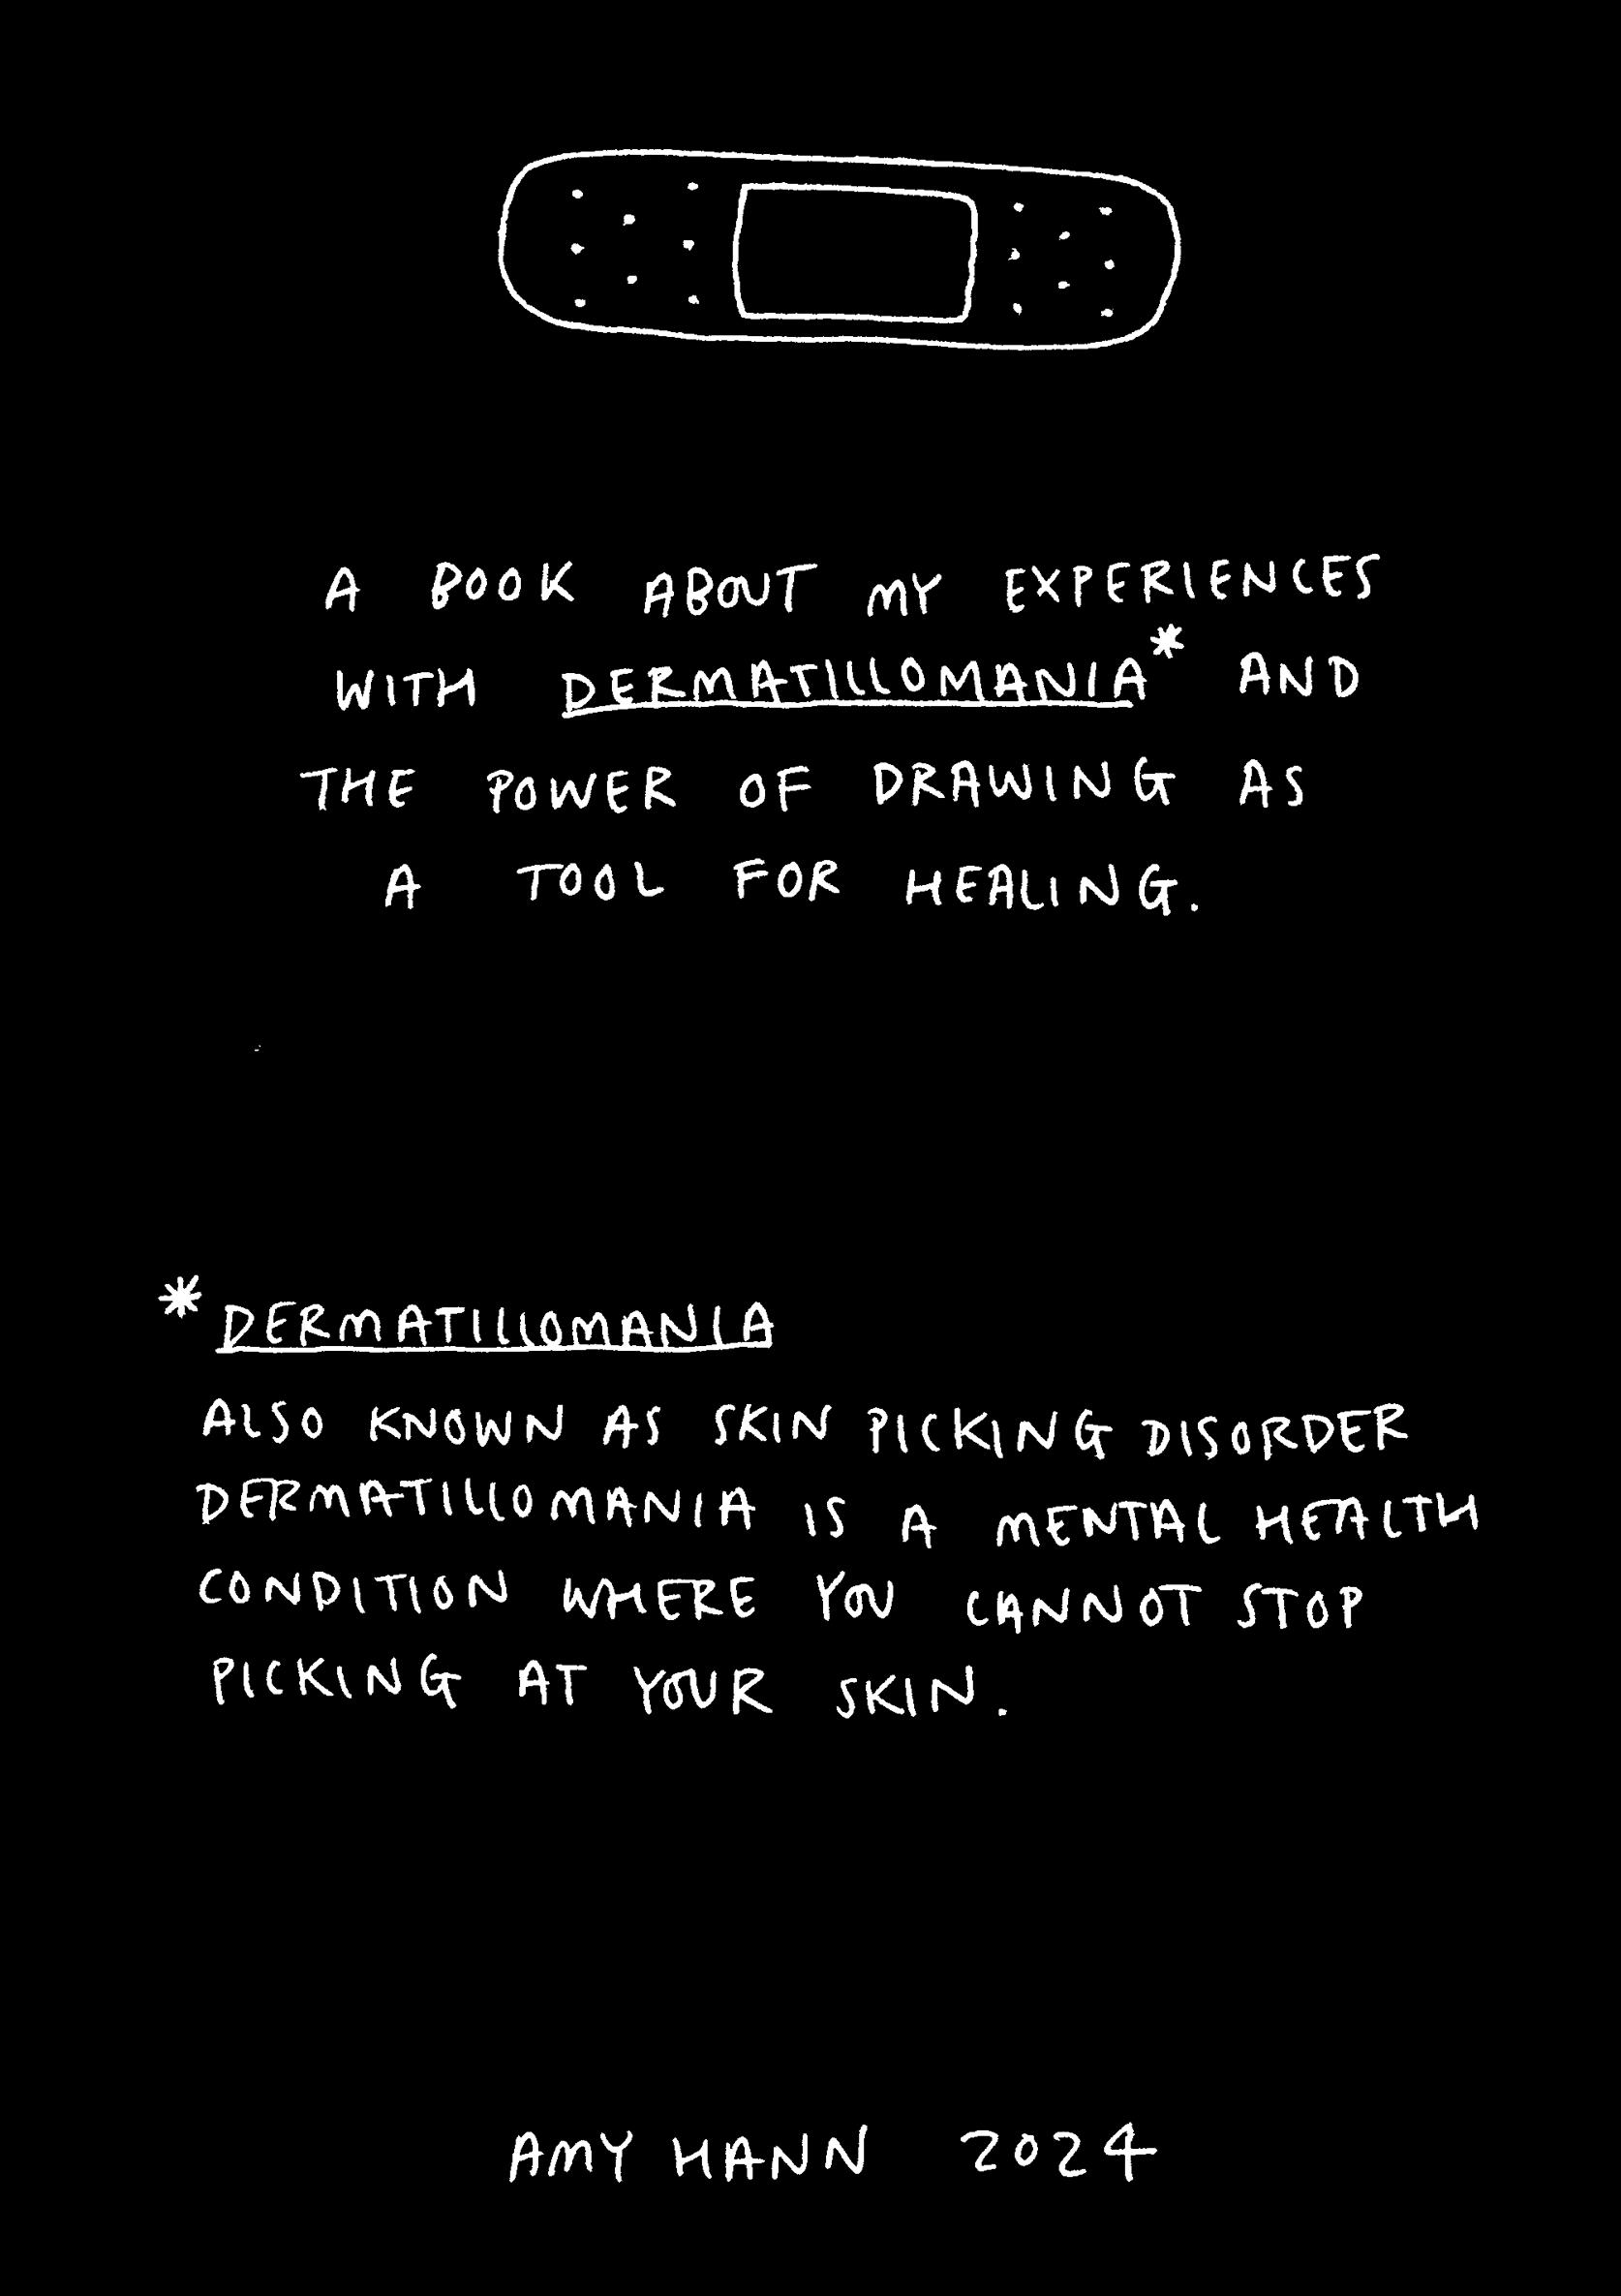 A BOOK ABOUT MY EXPERIENCES
WITH DERMATILLOMANIA* AND
THE POWER OF DRAWING AS
A TOOL FOR HEALING.
* DERMATILLOMANIA
ALSO KNOWN AS SKIN PICKING DISORDER
DERMATILLOMANIA IS A MENTAL HEALTH
CONDITION WHERE YOU CANNOT STOP
PICKING AT YOUR SKIN.
AMY HANN 2024